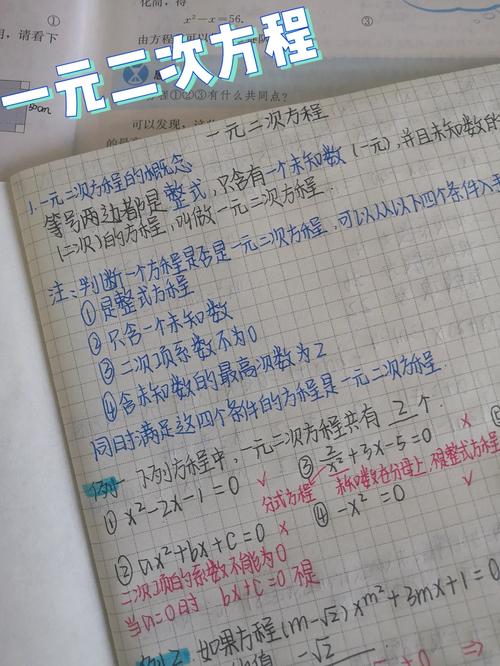 化简,得
①
x²-x=56.
③
,请看下
由方程
一元二次方程
50cm
方程①②③有什么共同点?
可以发现,这
一元二次方程
1.一元二次方程的概念
等号两边都是整式,只含有一个未知数(一元),并且未知数的
(二次)的方程,叫做一元二次方程.
注:判断一个方程是否是一元二次方程,可以从以下四个条件入手
①是整式方程
②只含一个未知数
③二次项系数不为0
④含未知数的最高次数为2
同时满足这四个条件的方程是一元二次方程.
例1 下列方程中,一元二次方程共有 2 个.
①x²-2x-1=0 √
③2/x²+3x-5=0 ×
分式方程 未知数在分母上,不是整式方程
②ax²+bx+c=0 ×
④-x²=0 √
二次项的系数不能为0
当a=0时 bx+c=0 不是
例2 如果方程(m-√2)xᵐ²+3mx+1=0
-√2